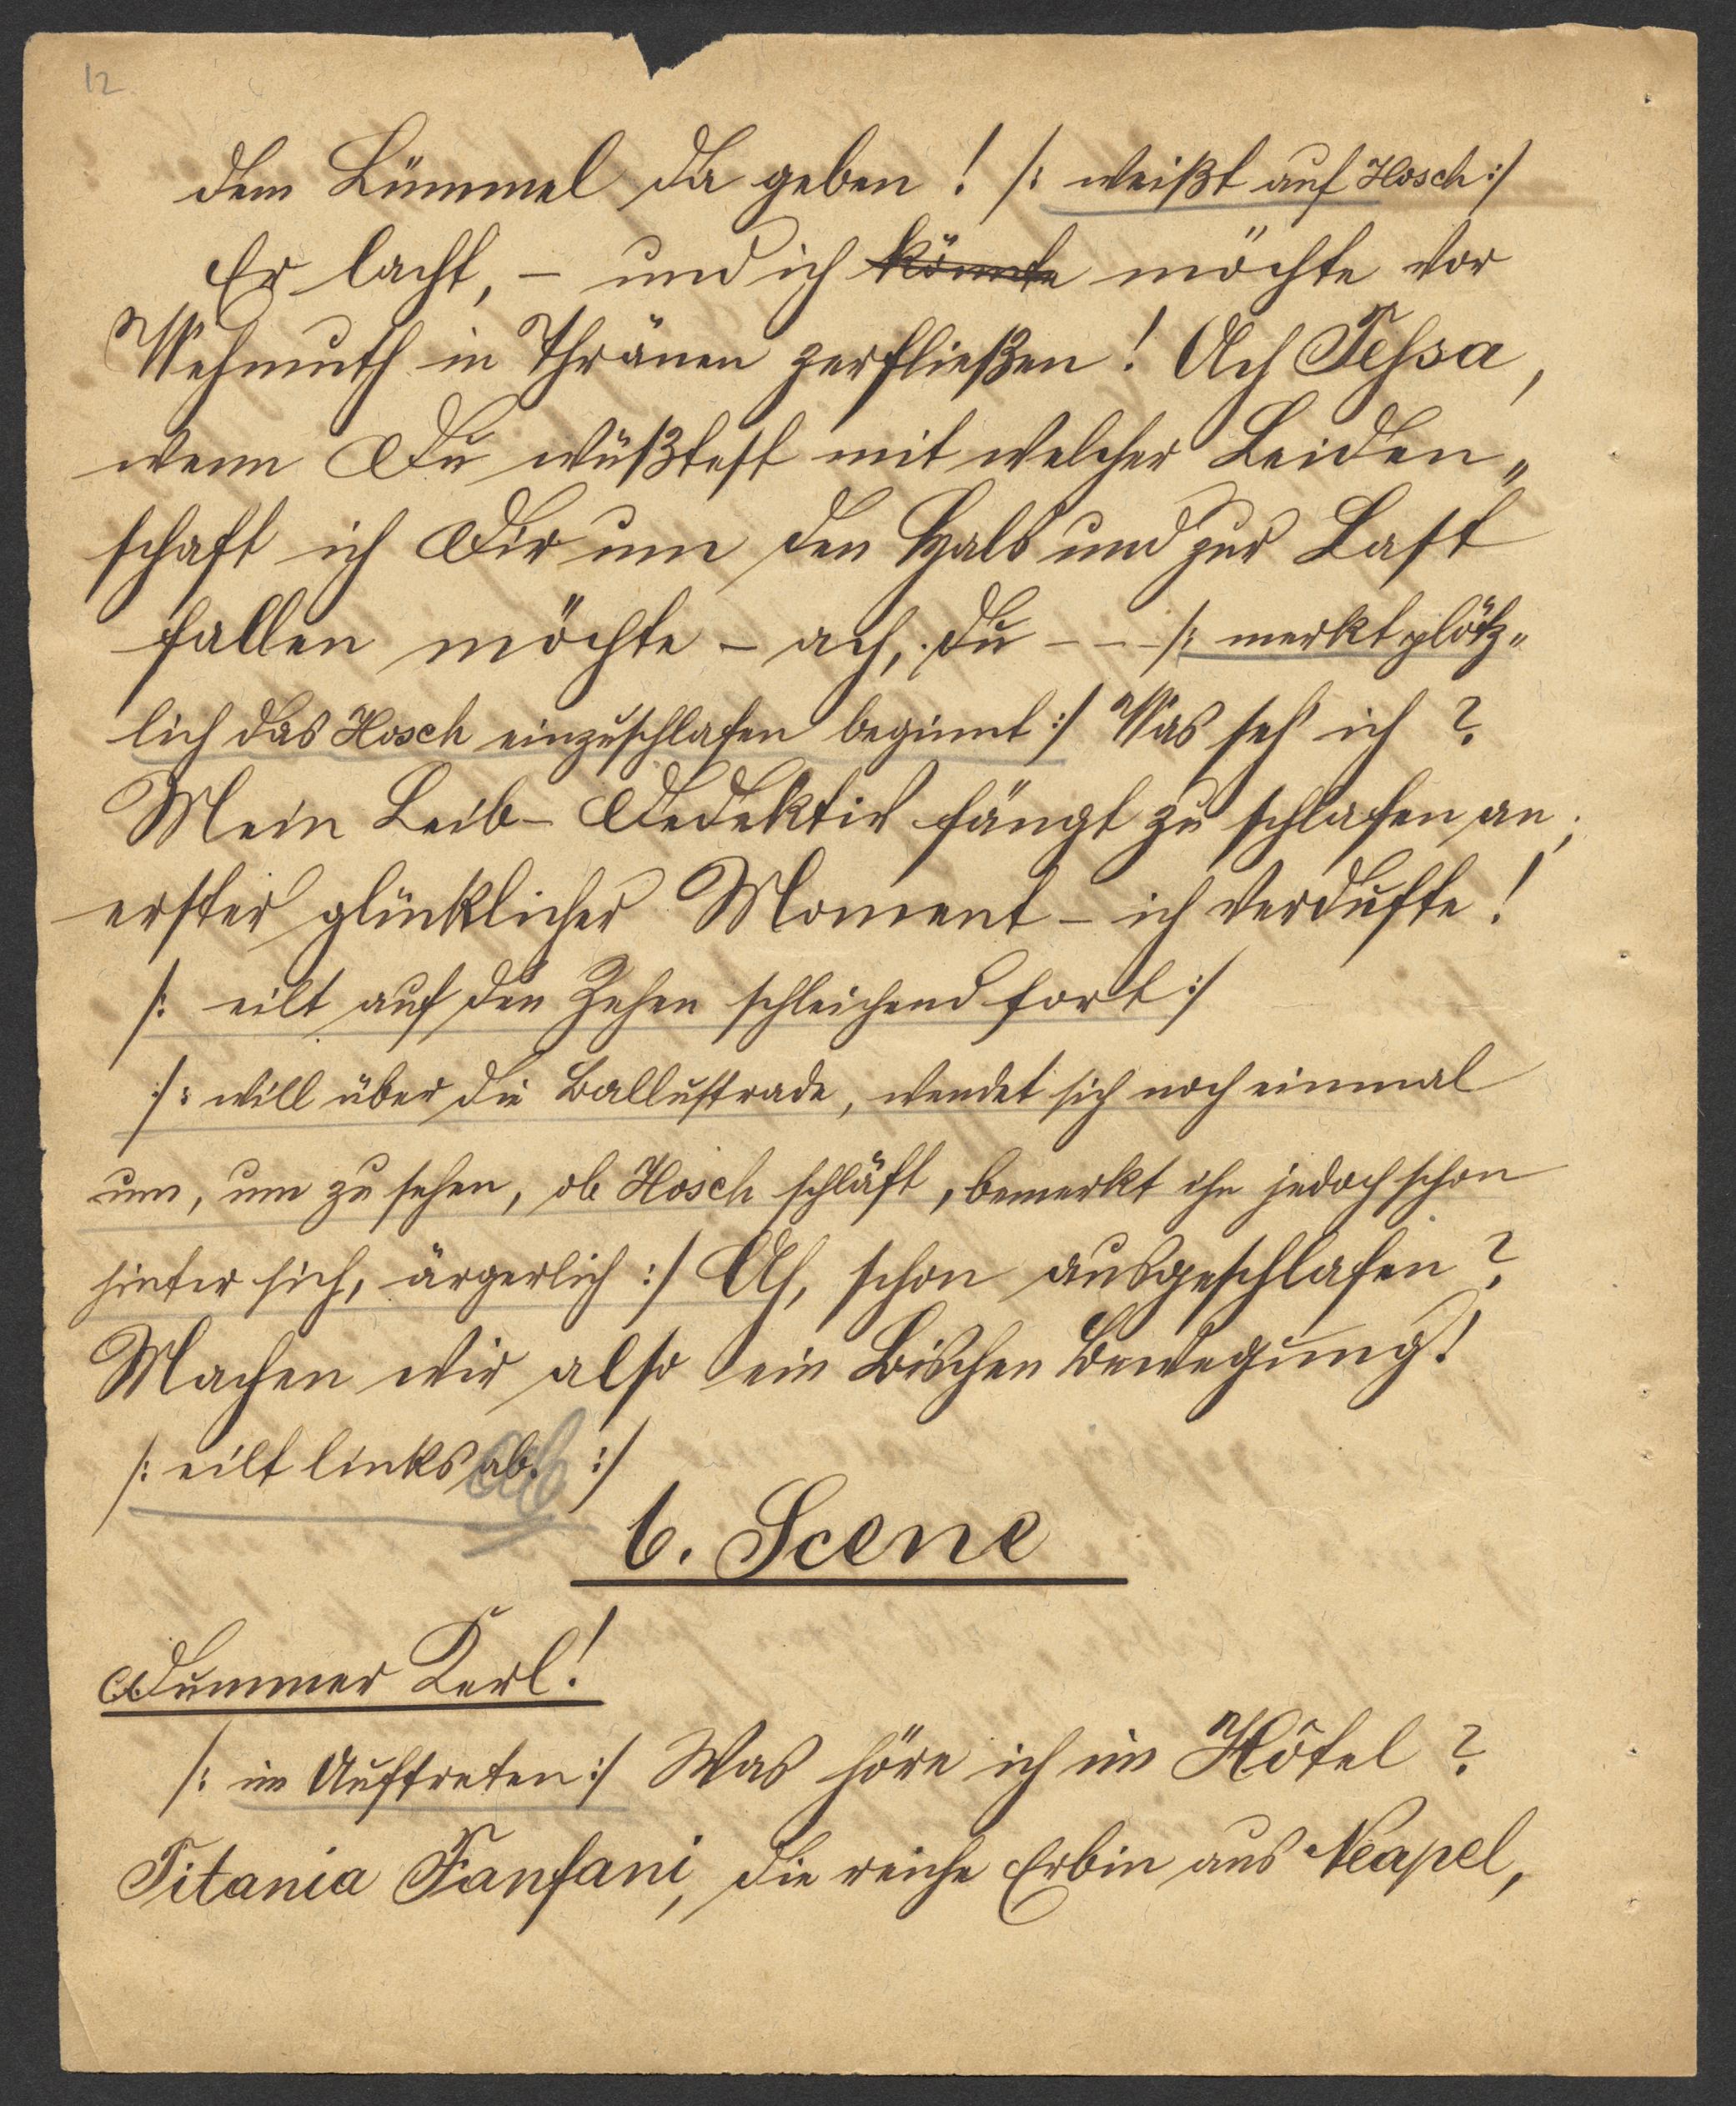 12
dem Lümmel da geben! /: weißt auf Hosch :/
Er lacht, – und ich könnte möchte vor
Wehmuth in Thränen zerfließen! Ach Tessa,
wenn Du wüßtest mit welcher Leiden„
schaft ich Dir um den Hals und zur Last
fallen möchte – ach, du – – – /: merkt plötz„
lich das Hosch einzuschlafen beginnt :/ Was seh' ich?
Mein Leib-Dedektiv fängt zu schlafen an;
erster glücklicher Moment – ich verdufte!
/: eilt auf den Zehen schleichend fort :/
/: will über die Ballustrade, wendet sich noch einmal
um, um zu sehen, ob Hosch schläft, bemerkt ihn jedoch schon
hinter sich, ärgerlich :/ Ah, schon ausgeschlafen?
Machen wir also ein Bischen Bewegung!
/: eilt links ab. ab :/
6. Scene
Dummer Kerl!
/: im Auftreten :/ Was höre ich im Hôtel?
Titania Fanfani, die reiche Erbin aus Neapel,